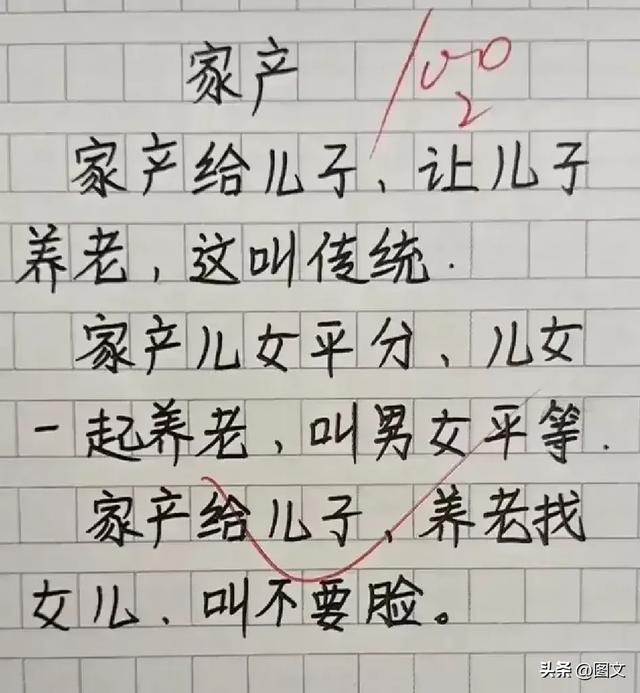 家产
100
2
家产给儿子、让儿子
养老,这叫传统.
家产儿女平分、儿女
一起养老,叫男女平等.
家产给儿子、养老找
女儿、叫不要脸。
头条 @图文